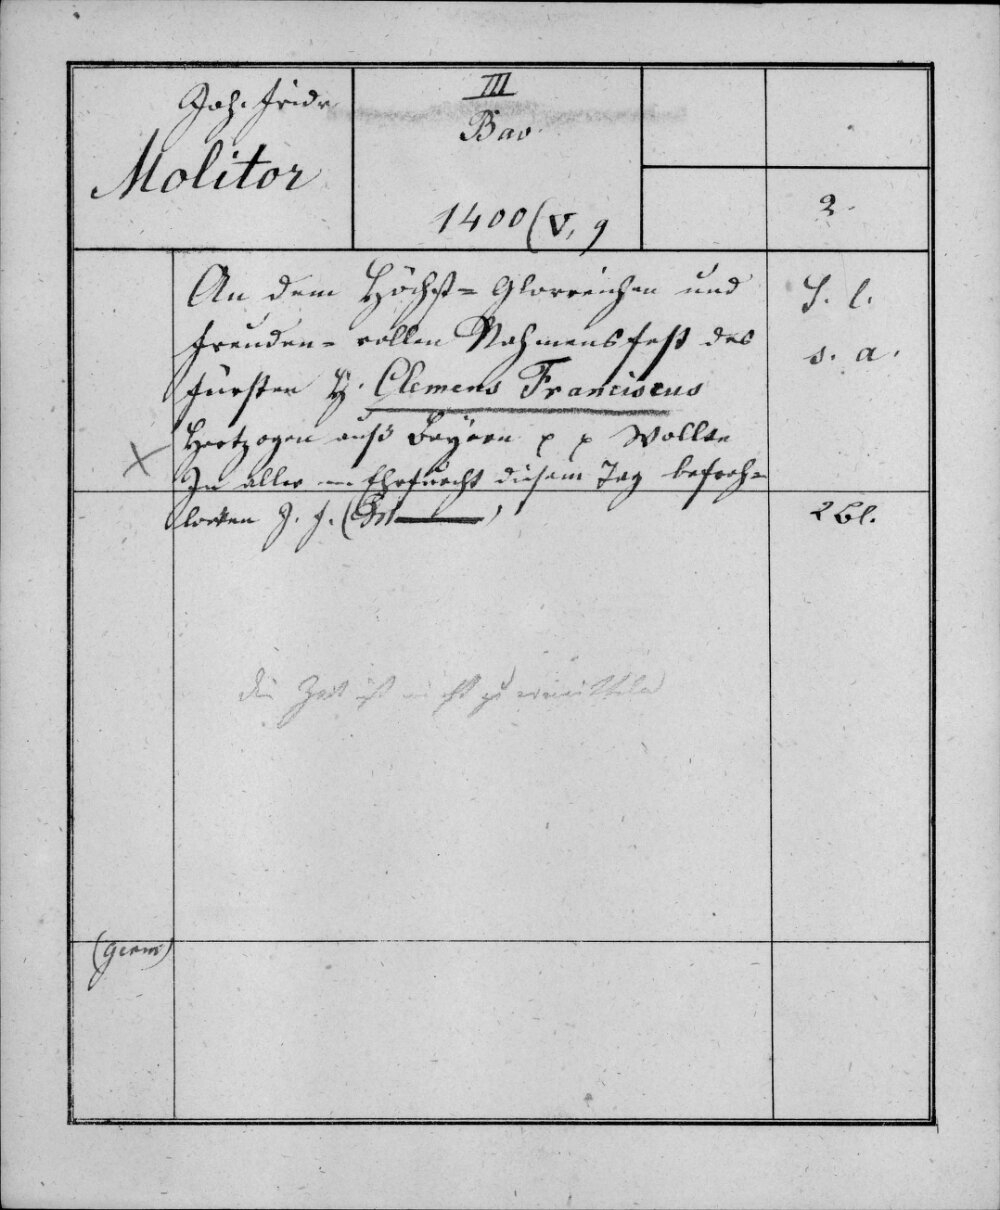 Joh. Fridr.
Molitor
III
Bav.
1400 (V, 9
2.
An dem Höchst= Glorreichen und
freuden= vollen Nahmensfest des
Fürsten H. Clemens Franciscus
Hertzogen auß Bayern p p Wollte
In aller Ehrfurcht diesem Tag befroh=
locken J. J. (
S. l.
s. a.
2 Bl.
die Zeit ist nicht zu ermitteln
(germ)